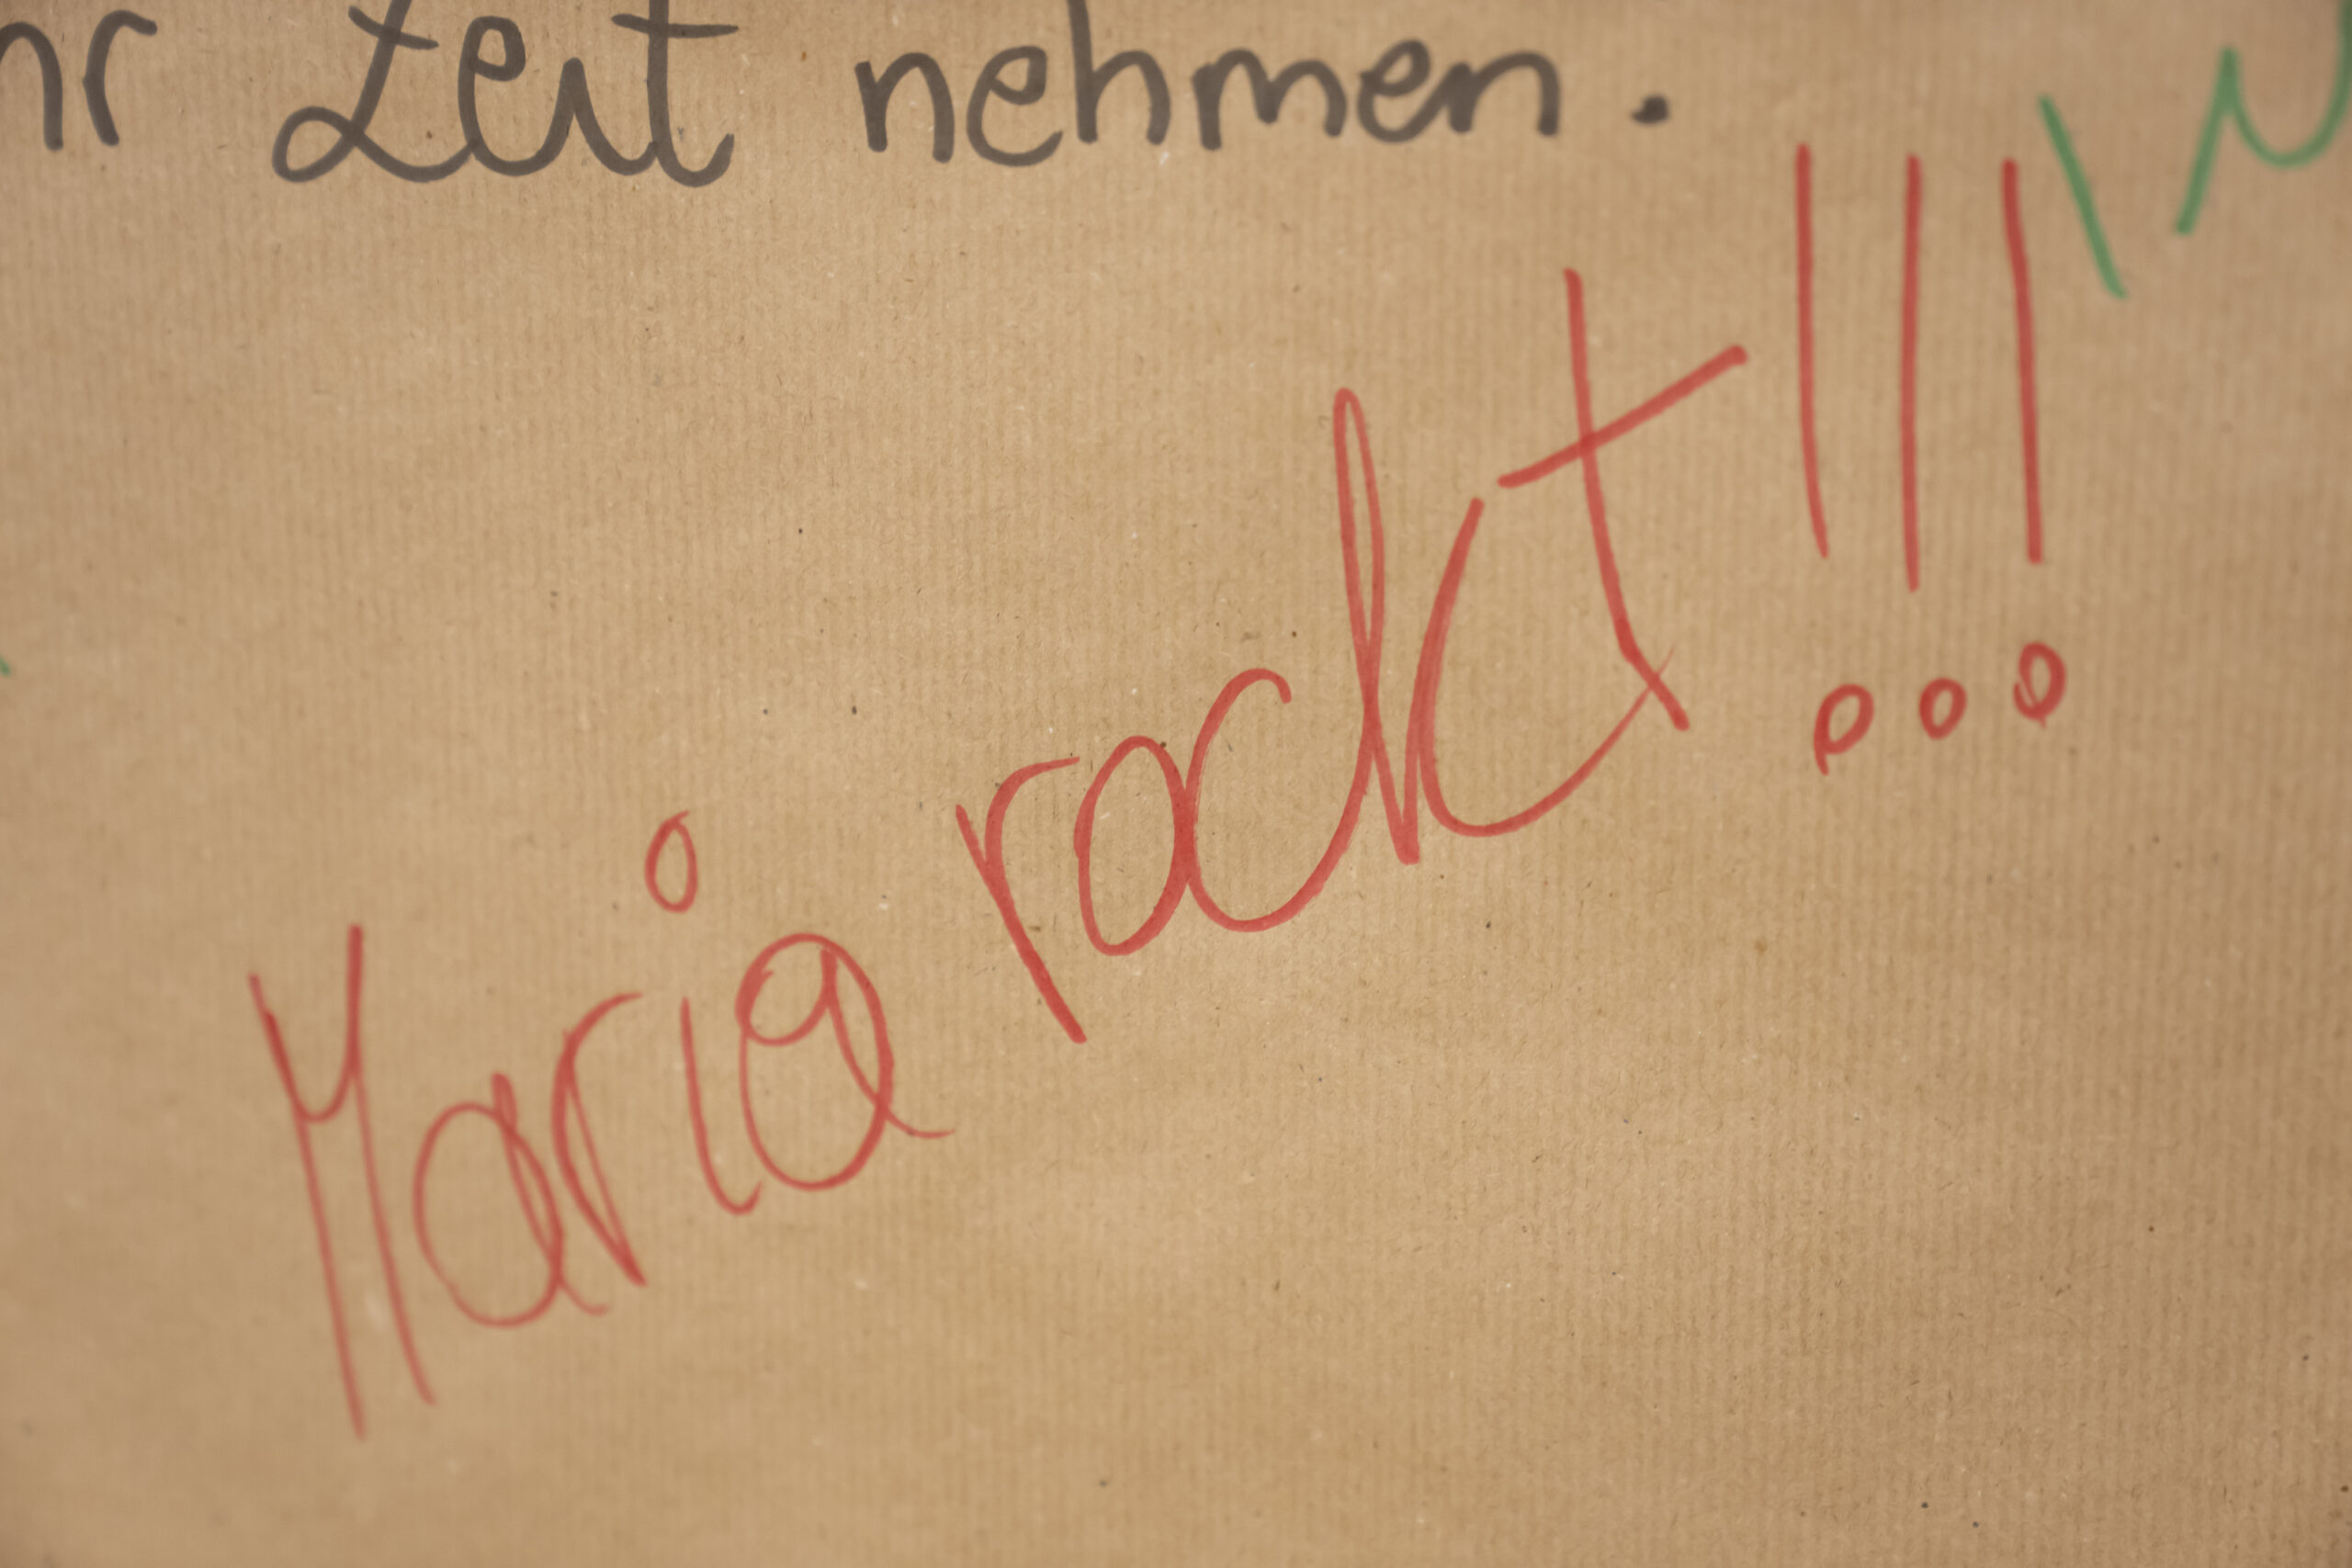 Zeit nehmen.
Maria rockt!!!